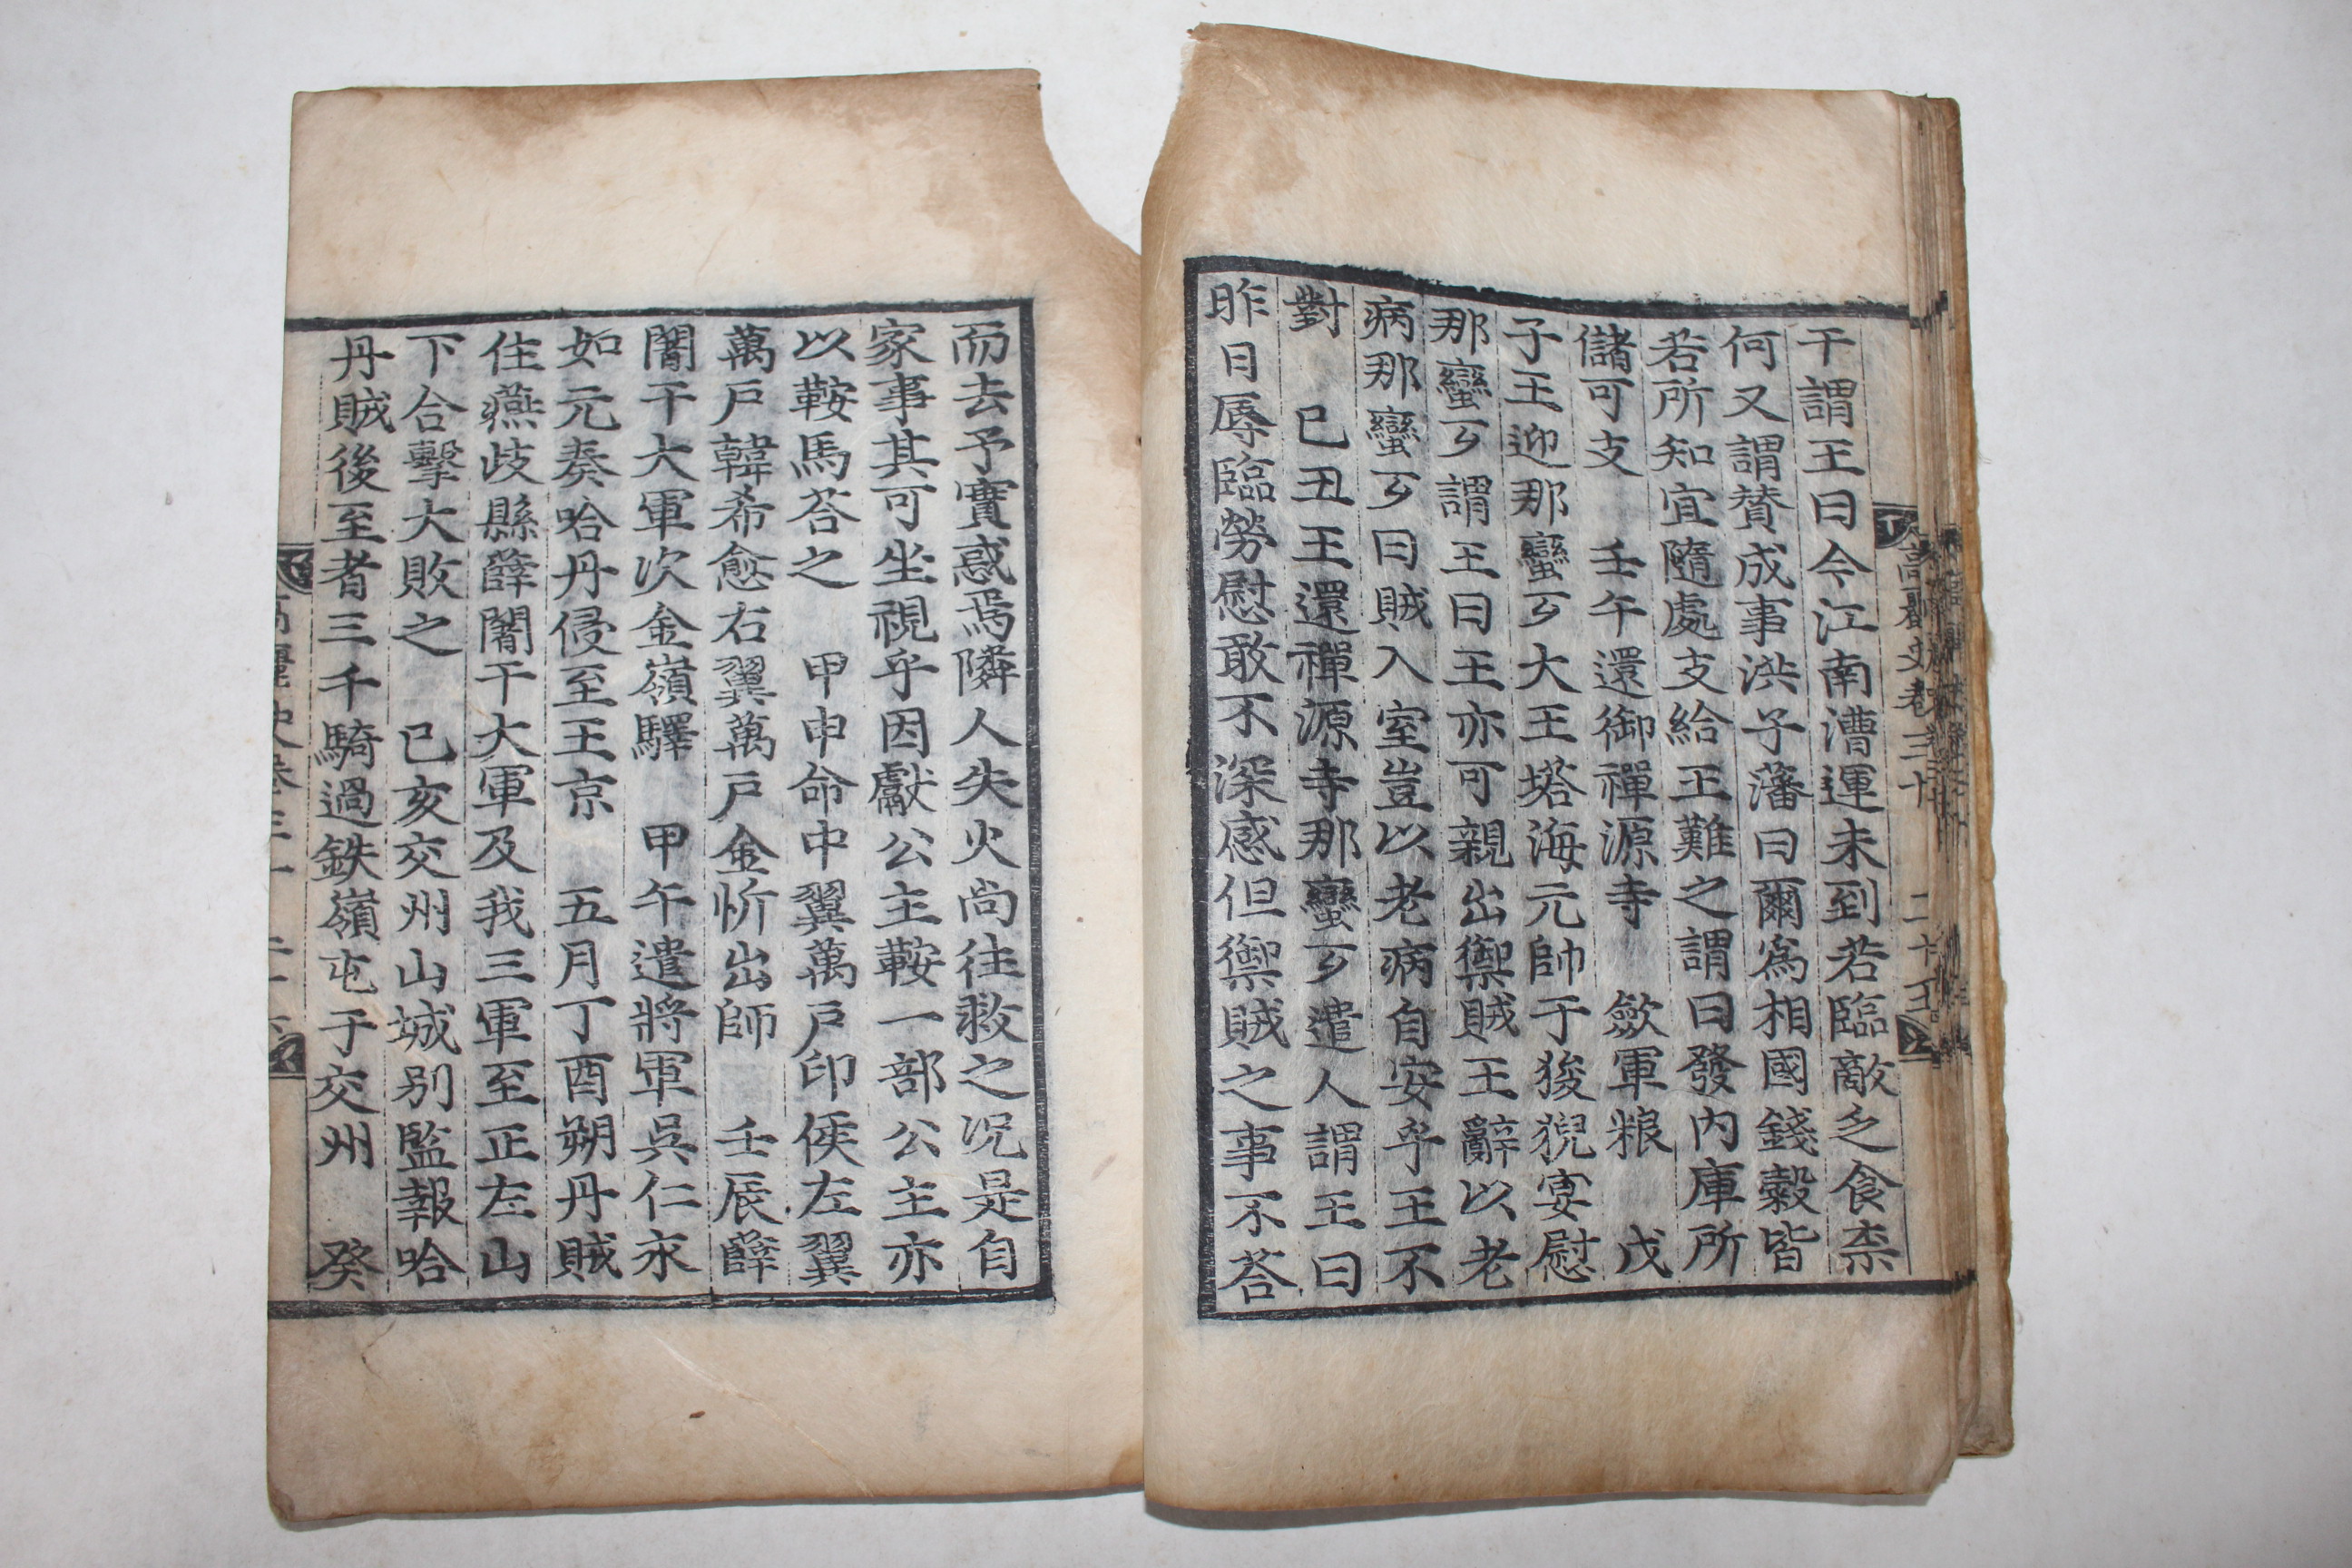 高麗史卷三十 二十五
干謂王曰今江南漕運未到若臨敵乏食柰
何又謂賛成事洪子藩曰爾爲相國錢穀皆
若所知宜隨處支給王難之謂曰發内庫所
儲可支 壬午還御禪源寺 歛軍粮 戊
子王迎那蠻歹大王塔海元帥于狻猊宴慰
那蠻歹謂王曰王亦可親出禦賊王辭以老
病那蠻歹曰賊入室豈以老病自安乎王不
對 己丑王還禪源寺那蠻歹遣人謂王曰
昨日辱臨勞慰敢不深感但禦賊之事不荅
而去予實惑焉隣人失火尚往救之况是自
家事其可坐視乎因獻公主鞍一部公主亦
以鞍馬荅之 甲申命中翼萬戶印侯左翼
萬戶韓希愈右翼萬戶金忻出師 壬辰薛
闍干大軍次金嶺驛 甲午遣將軍吳仁永
如元奏哈丹侵至王京 五月丁酉朔丹賊
住燕歧縣薛闍干大軍及我三軍至正左山
下合擊大敗之 己亥交州山城别監報哈
丹賊後至者三千騎過鉄嶺屯于交州 癸
麗史卷三十